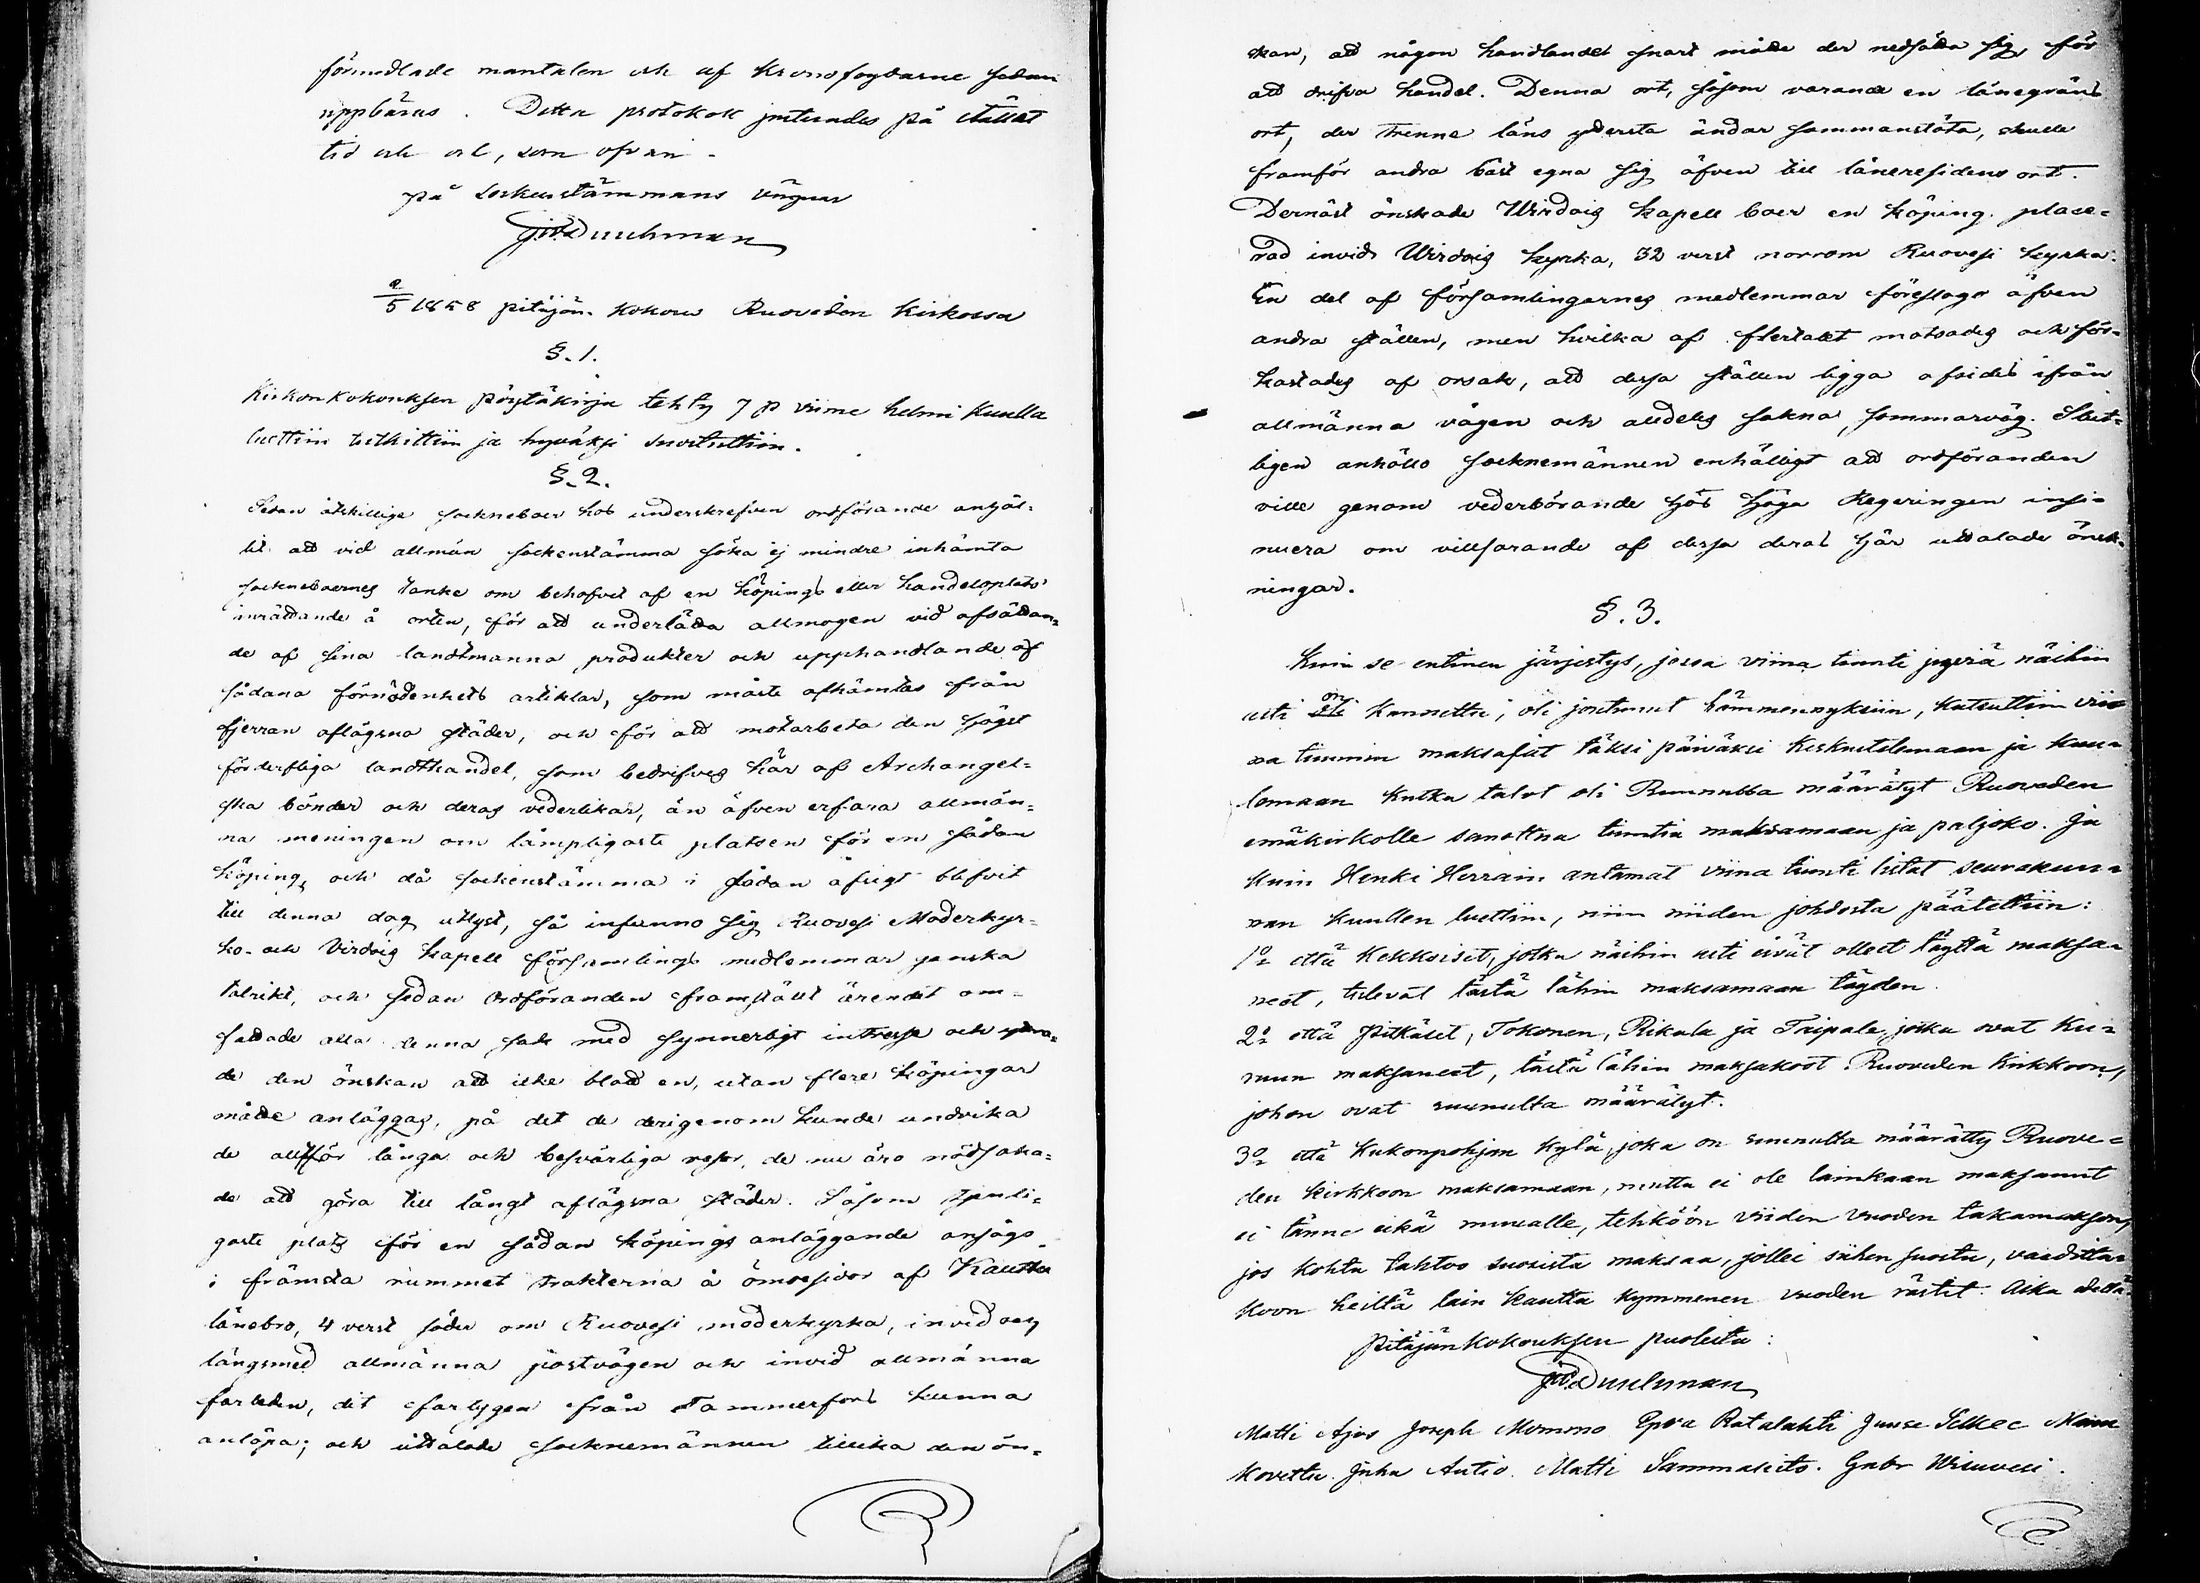 förmedlade mantalen och af Kronofogdarne sedan
uppbäras. Detta protokoll justerades på stället
tid och ort, som ofvan.
på Sockenstämmans vägnar
9/5 1858 pitäjän kokous Ruoveden Kirkossa
§. 1.
Kirkonkokouksen pöytäkirja tehty 7 p viime helmi kuulla
luettiin tutkittiin ja hyväksi suostuttiin.
§. 2.
Sedan åtskillige sockneboer hos underskrefven ordförande anhål-
lit att vid allmän sockenstämma söka ej mindre inhämta
socknеboernes tanke om behofvet af en köpings eller handelsplats'
inrättande å orten, för att underlätta allmogen vid afsättan-
de af sina landtmanna produkter och upphandlande af
sådana förnödenhets artiklar, som måste afhämtas från
fjerran aflägsna städer, och för att motarbeta den högst
förderfliga landthandel, som bedrifves här af Archangel-
ska bönder och deras vederlikar, än äfven erfara allmän-
na meningen om lämpligaste platsen för en sådan
köping, och då sockenstämma i sådan afsigt blifvit
till denna dag utlyst, så infunno sig Ruovesi Moderkyr-
ko- och Virdois kapell församlings medlemmar ganska
talrikt, och sedan Ordföranden framställt ärendet om-
fattade alla denna sak med synnerligt intresse och yttra-
de den önskan att icke blott en, utan flere köpingar
måtte anläggas, på det de derigenom kunde undvika
de alltför långa och besvärliga resor, de nu äro nödsaka-
de att göra till långt aflägsna städer. Såsom tjenli-
gaste plats för en sådan köpings anläggande ansågs
i främsta rummet trakterna å ömsesidor af Kautto
länebro, 4 verst söder om Ruovesi moderkyrka, invid och
längsmed allmänna postvägen och invid allmänna
farleden, dit fartygen från Tammerfors kunna
anlöpa; och uttalade socknemännen tillika den ön-
skan, att någon handlande snart måtte der nedsätta sig, för
att drifva handel. Denna ort, såsom varande en länegräns
ort, der trenne läns ydersta ändar sammanstöta, skulle
framför andra bäst egna sig äfven till läneresidens ort.
Dernäst önskade Wirdois kapell boer en köping place-
rad invid Wirdois kyrka, 32 verst norrom Ruovesi kyrka.
En del af församlingarnes medlemmar föreslogo äfven
andra ställen, men hvilka af flertalet motsades och för-
kastades af orsak, att dessa ställen ligga afsides ifrån
allmänna vägen och alldeles sakna sommarväg. Slut-
ligen anhöllo socknemännen enhälligt att ordföranden
ville genom vederbörande hos Höga Regeringen insi-
nuera om villfarande af dessa deras här uttalade önsk-
ningar.
§. 3.
Kuin se entinen järjestys, jossa viina tunti jyviä näihin
asti on kannettu, oli joutunut hämmennyksiin, kutsuttiin vii-
na tunnin maksajat täksi päiväksi keskustelemaan ja kuu-
lemaan kutka talot oli Ruunulta määrätyt Ruoveden
emäkirkolle sanottua tuntia maksamaan ja paljoko. Ja
kuin Henki Herrain antamat viina tunti listat seurakun-
nan kuullen luettiin, niin niiden johdosta päätettiin:
1o että Kekkoiset, jotka näihin asti eivät olleet täyttä maksa-
neet, tulevat tästä lähin maksamaan täyden.
2o että Pitkäset, Tokonen, Rikala ja Taipale, jotka ovat Ku-
ruun maksaneet, tästä lähin maksakoot Ruoveden Kirkkoon,
johon ovat ruunulta määrätyt.
3o että Kukonpohjan kylä, joka on ruunulta määrätty Ruove-
den kirkkoon maksamaan, mutta ei ole lainkaan maksanut
ei tänne eikä muualle, tehköön viiden vuoden takamakson,
jos kohta tahtoo suosista maksaa, jollei siihen suostu, vaadittа-
koon heiltä lain kautta kymmenen vuoden rästit. Aika
Pitäjänkokouksen puolesta:
Matti Ajos Joseph Mommo Ratalahti Juuse
Kovettu. Juha Autio. Matti Sammalisto. Gabr Wisuvesi.